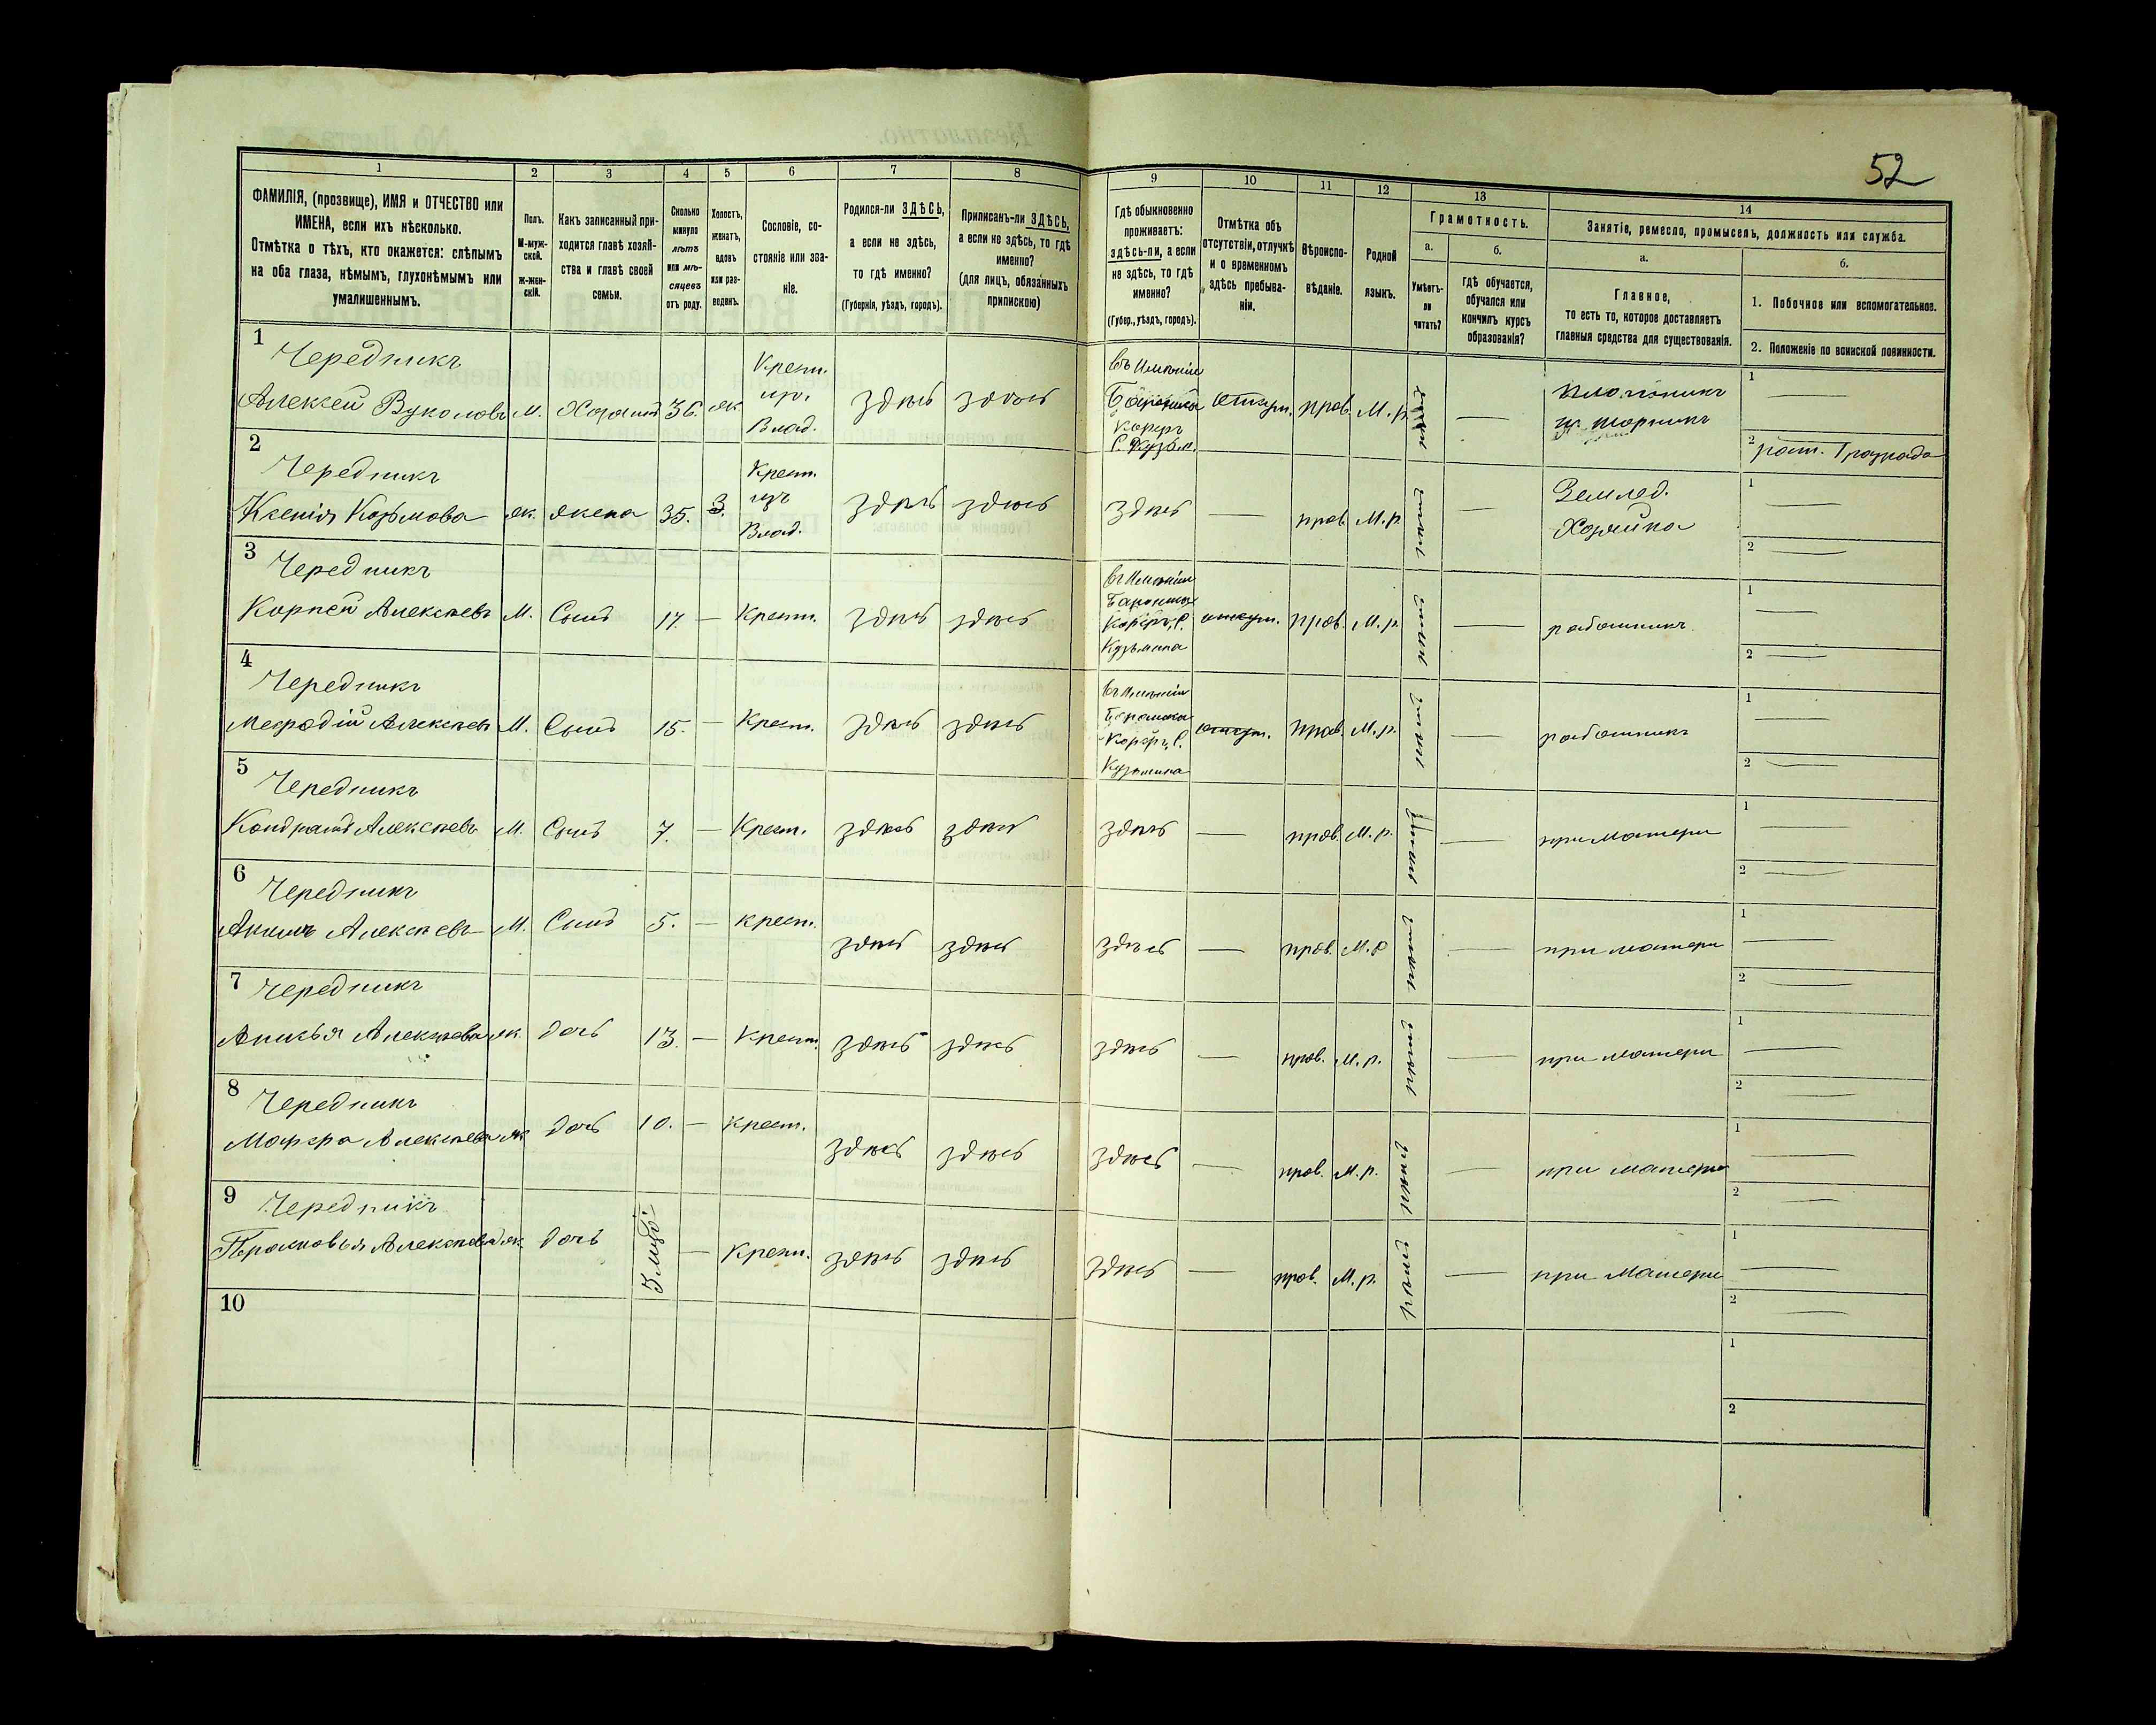 52
1 2 3 4 5 6 7 8 9 10 11 12 13 14
ФАМИЛІЯ, (прозвище), ИМЯ и ОТЧЕСТВО или
ИМЕНА, если ихъ нѣсколько.
Отмѣтка о тѣхъ, кто окажется: слѣпымъ
на оба глаза, нѣмымъ, глухонѣмымъ или
умалишеннымъ.
Полъ.
М-муж-
ской.
Ж-жен-
скій.
Какъ записанный при-
ходится главѣ хозяй-
ства и главѣ своей
семьи.
Сколько
минуло
лѣтъ
или мѣ-
сяцевъ
отъ роду.
Холостъ,
женатъ,
вдовъ
или раз-
веденъ.
Сословіе, со-
стояніе или зва-
ніе.
Родился-ли ЗДѢСЬ,
а если не здѣсь,
то гдѣ именно?
(Губернія, уѣздъ, городъ).
Приписанъ-ли ЗДѢСЬ,
а если не здѣсь, то гдѣ
именно?
(для лицъ, обязанныхъ
припискою)
Гдѣ обыкновенно
проживаетъ:
здѣсь-ли, а если
не здѣсь, то гдѣ
именно?
(Губер., уѣздъ, городъ).
Отмѣтка объ
отсутствіи, отлучкѣ
и о временномъ
здѣсь пребыва-
ніи.
Вѣроиспо-
вѣданіе.
Родной
языкъ.
Грамотность.
а.
Умѣетъ-
ли
читать?
б.
Гдѣ обучается,
обучался или
кончилъ курсъ
образованія?
Занятіе, ремесло, промыселъ, должность или служба.
а.
Главное,
то есть то, которое доставляетъ
главныя средства для существованія.
б.
1. Побочное или вспомогательное.
2. Положеніе по воинской повинности.
1 Чередникъ
Алексей Вуколовъ М. Хозяинъ 36. ж. Крест. из. Влад. здѣсь здѣсь въ Имѣніи отсут. прав. М. р. нѣтъ — 1 —
2
2 Чередникъ
Ксенія Козьмова ж. жена 35. з. Крест. изъ Влад. здѣсь здѣсь здѣсь — прав. М. р. нѣтъ — Землед. Хозяйка 1 —
2 —
3 Чередникъ
Корней Алексѣевъ М. Сынъ 17. — Крест. здѣсь здѣсь въ Имѣніи Кузьмина отсут. прав. М. р. — работникъ 1 —
2 —
4 Чередникъ
Мефодій Алексѣевъ М. Сынъ 15. — Крест. здѣсь здѣсь въ Имѣніи Кузьмина отсут. прав. М. р. — работникъ 1 —
2 —
5 Чередникъ
Кондратъ Алексѣевъ М. Сынъ 7. — Крест. здѣсь здѣсь здѣсь — прав. М. р. — при матери 1
2 —
6 Чередникъ
Акимъ Алексѣевъ М. Сынъ 5. — крест. здѣсь здѣсь здѣсь — прав. М. р — при матери 1 —
2 —
7 Чередникъ
Алексѣева ж. дочь 13. — Крест. здѣсь здѣсь здѣсь — прав. М. р. — при матери 1 —
2 —
8 Чередникъ
Алексѣева ж. дочь 10. — Крест. здѣсь здѣсь здѣсь — прав. М. р. — при матери 1 —
2 —
9 Чередникъ
Парасковья Алексѣева ж. дочь — Крест. здѣсь здѣсь здѣсь — прав. М. р. — при матери 1 —
2 —
10
1
2